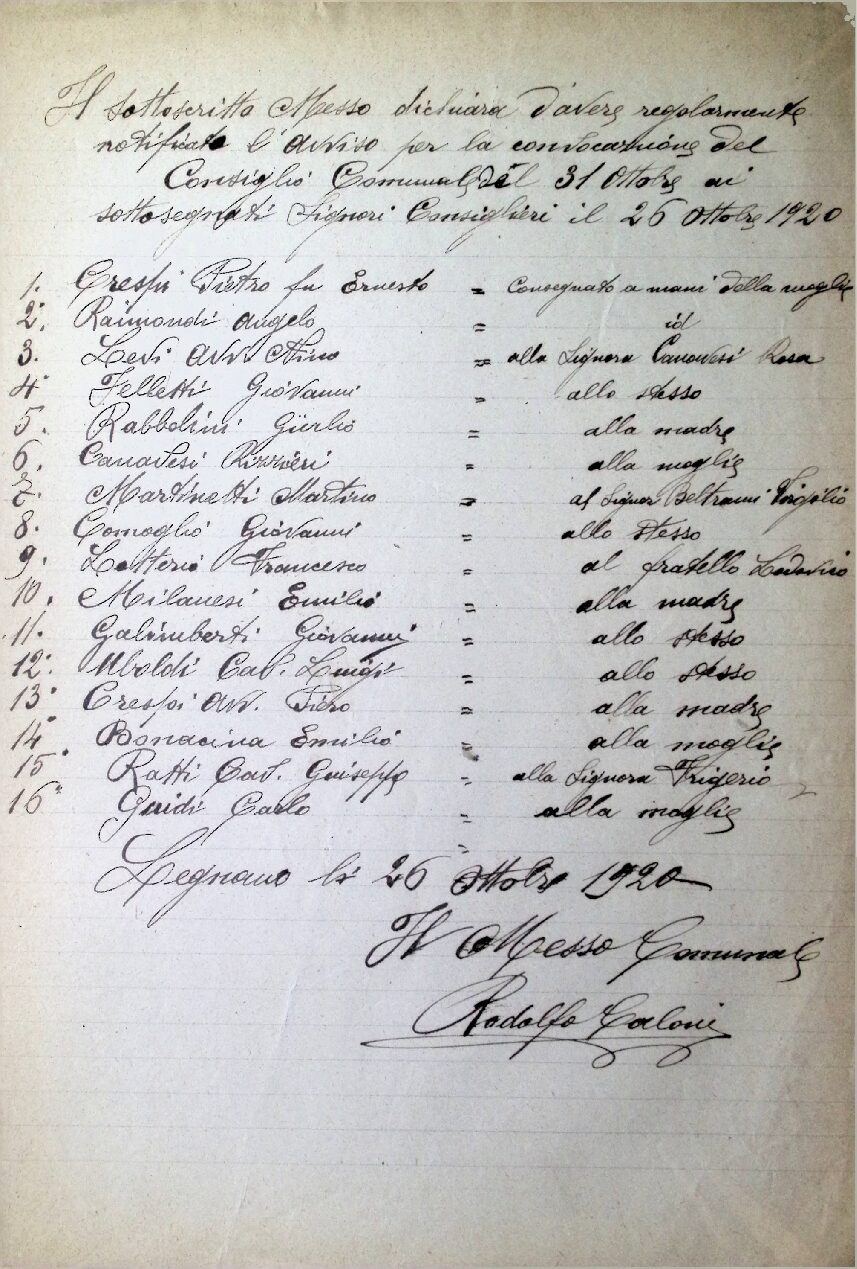 Il sottoscritto Messo dichiara d'avere regolarmente
notificato l'avviso per la convocazione del
Consiglio Comunale del 31 Ottobre ai
sottosegnati Signori Consiglieri il 26 Ottobre 1920
1. Crespi Pietro fu Ernesto = Consegnato a mani della moglie
2. Raimondi Angelo = id
3. Levi Avv. Nino = alla Signora Canavesi Rosa
4. Felletti Giovanni = allo stesso
5. Rabbolini Giulio = alla madre
6. Canavesi Rizzieri = alla moglie
7. Martinetti Martino = al Signor Beltrami Virgilio
8. Comoglio Giovanni = allo stesso
9. Lotterio Francesco = al fratello Lodovico
10. Milanesi Emilio = alla madre
11. Galimberti Giovanni = allo stesso
12. Uboldi Cav. Luigi = allo stesso
13. Crespi Avv. Piero = alla madre
14. Bonacina Emilio = alla moglie
15. Ratti Cav. Guiseppe = alla Signora Frigerio
16. Guidi Carlo = alla moglie
=
Legnano li 26 Ottobre 1920
Il Messo Comunale
Rodolfo Caloni